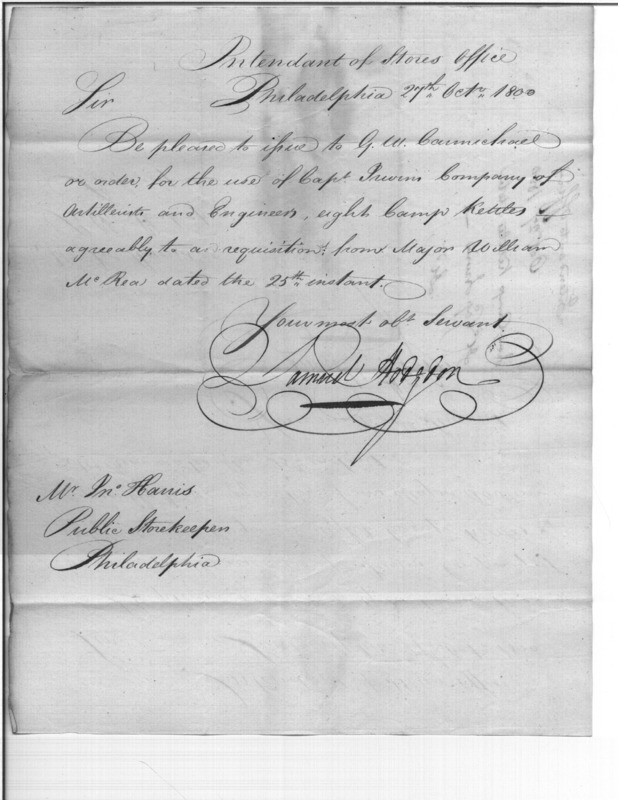 Intendant of Stores Office
Philadelphia 27th Octr 1800
Sir
Be pleased to issue to G. W. Carmichael
or order, for the use of Capt. Irwins Company of
Artillerists and Engineers, eight Camp Kettles
agreeably to a requisition from Major William
McRea dated the 25th instant.
Your most obt Servant
Samuel Hodgdon
Mr. Jno. Harris
Public Storekeeper
Philadelphia